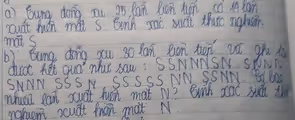 a) Tung đồng xu 25 lần liên tiếp có 15 lần
xuất hiện mặt S. Tính xác suất thực nghiệm
mặt S
b) Tung đồng xu 30 lần liên tiếp và ghi
được kết quả như sau : SSNNN SN
SNNN SSN SSSS NN SSNN
nhiêu lần xuất hiện mặt N? Tính xác suất
nghiệm xuất hiện mặt N